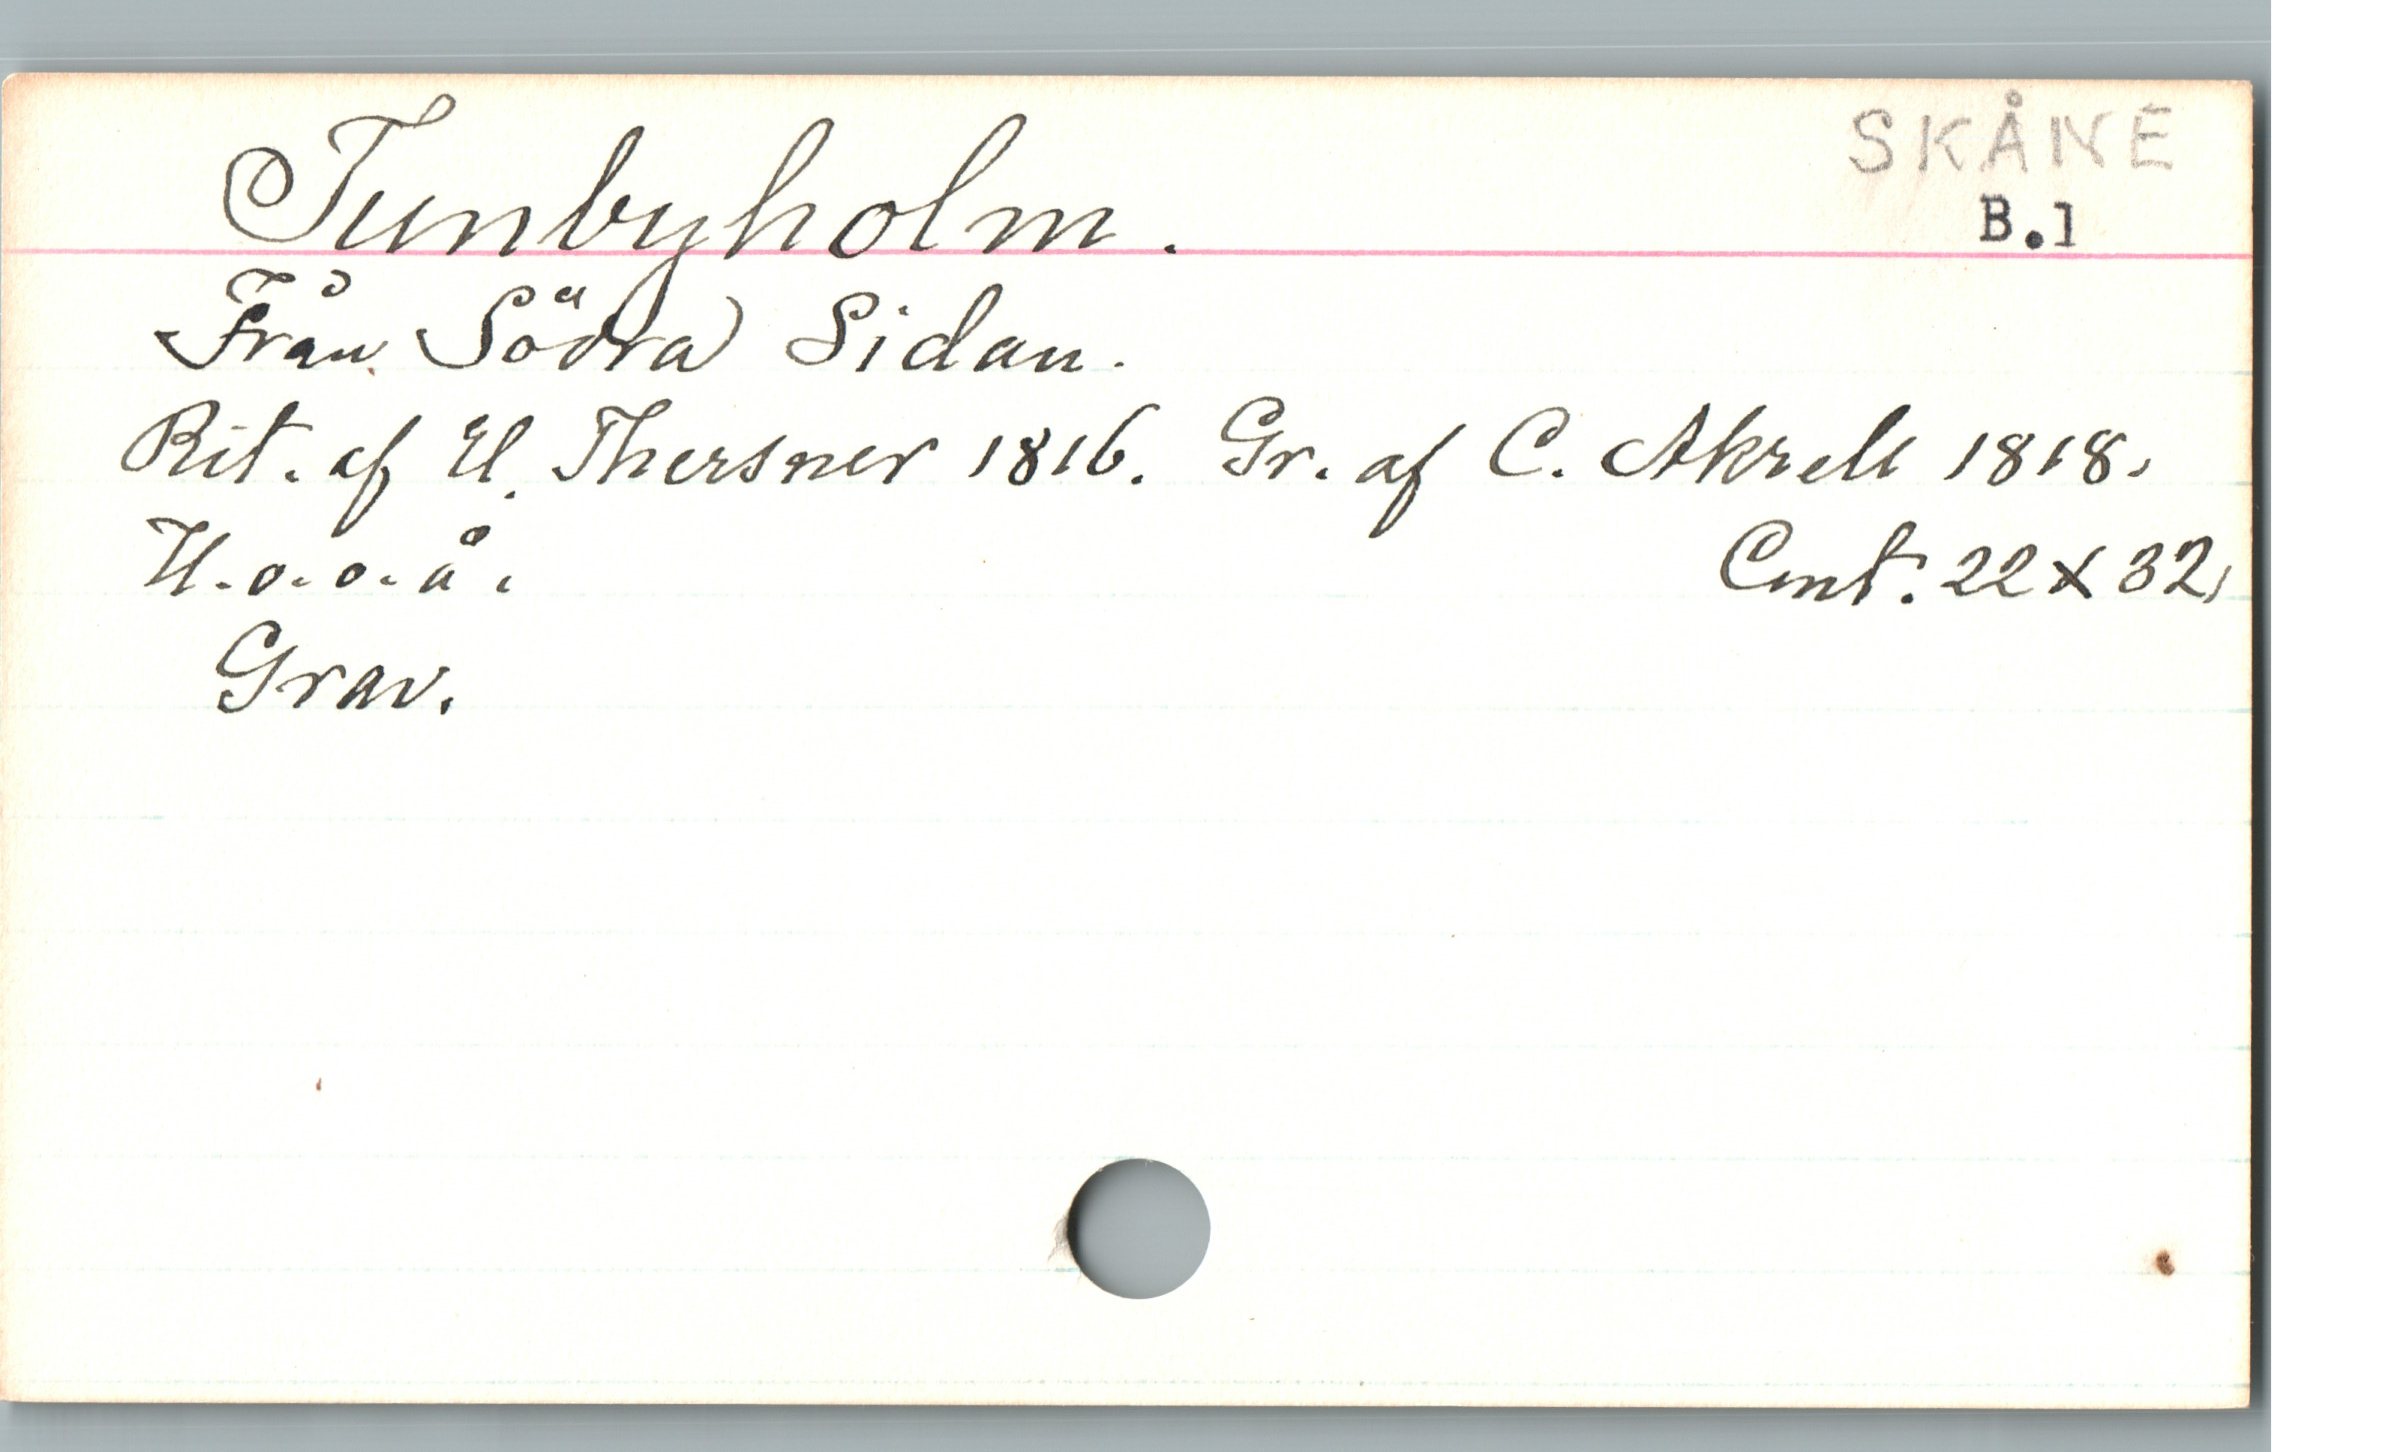 SKÅNE
Tunbyholm.
B.1
Från Södra Sidan.
Rit. af U. Thersner 1816. Gr. af C. Akrell 1818.
U.o.o.å.
Cont. 22 x 32,
Grav.